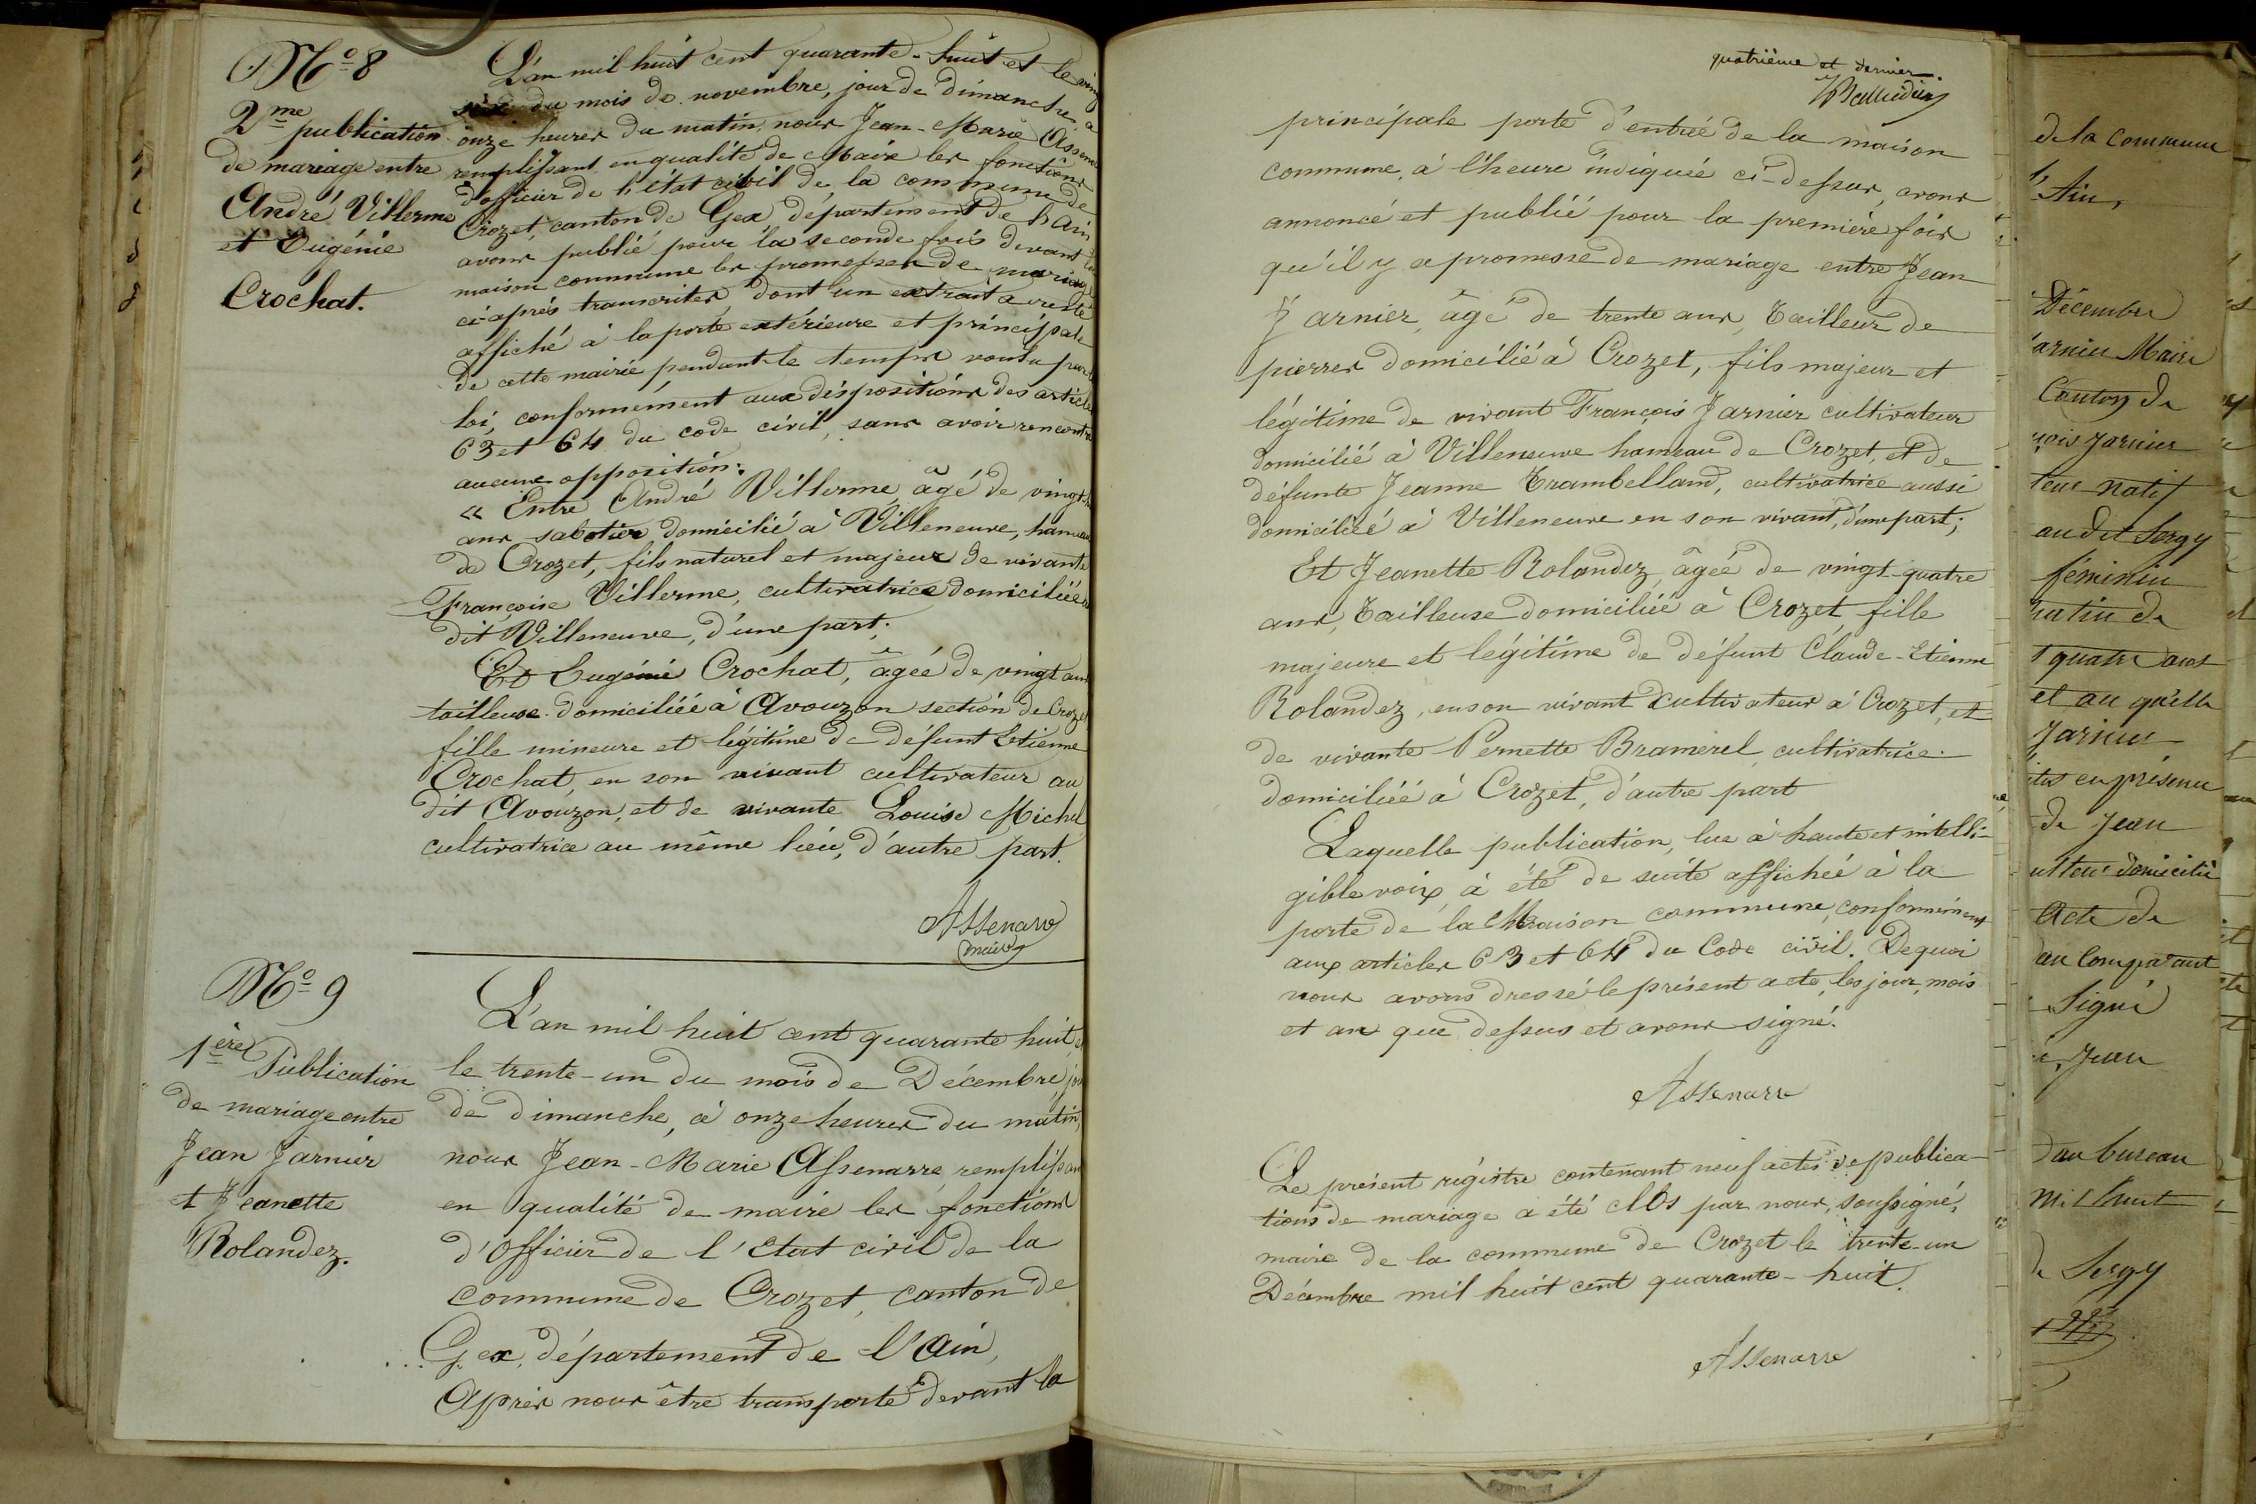 No. 8
2me publication
de mariage entre
André Villerme
et Eugénie
Crochat.
L'an mil huit cent quarante-huit et le vingt
six du mois de novembre, jour de dimanche, à
onze heures du matin, nous Jean-Marie Assena
remplissant en qualité de Maire les fonctions
d'officier de l'état civil de la commune de
Crozet, canton de Gex département de l'Ain
avons publié pour la seconde fois devant la
maison commune les promesses de mariage
ci-après transcrites dont un extrait a resté
affiché à la porte extérieure et principale
de cette mairie pendant le temps voulu par la
loi, conformément aux dispositions des articles
63 et 64 du code civil, sans avoir rencontré
aucune opposition:
« Entre André Villerme, âgé de vingt
ans sabotier domicilié à Villeneuve, hameau
de Crozet, fils naturel et majeur de vivante
Françoise Villerme, cultivatrice domiciliée
dit Villeneuve, d'une part;
Et Eugénie Crochat, âgée de vingt ans
tailleuse domiciliée à Avouzon section de Crozet
fille mineure et légitime de défunt Etienne
Crochat, en son vivant cultivateur au
dit Avouzon, et de vivante Louise Michel
cultivatrice au même lieu, d'autre part.
Assenarre
maire
No. 9
1ère Publication
de mariage entre
Jean Jarnier
et Jeanette
Rolandez.
L'an mil huit cent quarante huit, et
le trente-un du mois de Décembre, jour
de dimanche, à onze heures du matin,
nous Jean-Marie Assenarre, remplissant
en qualité de maire les fonctions
d'Officier de l'Etat civil de la
commune de Crozet, canton de
Gex, département de l'Ain,
Après nous être transporté devant la
quatrième et dernier.
principale porte d'entrée de la maison
commune, à l'heure indiquée ci-dessus, avons
annoncé et publié pour la première fois
qu'il y a promesse de mariage entre Jean
Jarnier, âgé de trente ans, Tailleur de
pierres domicilié à Crozet, fils majeur et
légitime de vivant François Jarnier cultivateur
domicilié à Villeneuve hameau de Crozet, et de
défunte Jeanne Trambelland, cultivatrice aussi
domiciliée à Villeneuve en son vivant, d'une part;
Et Jeanette Rolandez, âgée de vingt-quatre
ans, Tailleuse domiciliée à Crozet fille
majeure et légitime de défunt Claude-Etienne
Rolandez, en son vivant cultivateur à Crozet, et
de vivante Pernette Bramerel, cultivatrice
domiciliée à Crozet, d'autre part
Laquelle publication, lue à haute et intelli-
gible voix, à été de suite affichée à la
porte de la Maison commune, conformément
aux articles 63 et 64 du Code civil. De quoi
nous avons dressé le présent acte, les jour, mois
et an que dessus et avons signé.
Assenarre
Le présent régistre contenant neuf actes de publica-
tions de mariage a été clos par nous, soussigné,
maire de la commune de Crozet le trente-un
Décembre mil huit cent quarante-huit.
Assenarre
de la commune
Ain,
Décembre
arnier Maire
Canton de
çois Jarnier
teur natif
audit Sergy
féminin
matin de
quatre ans
et an qu'elle
Jarnier
en présence
de Jean
domicilié
Acte de
au Comparant
Signé
Jean
au bureau
mil huit
de Sergy